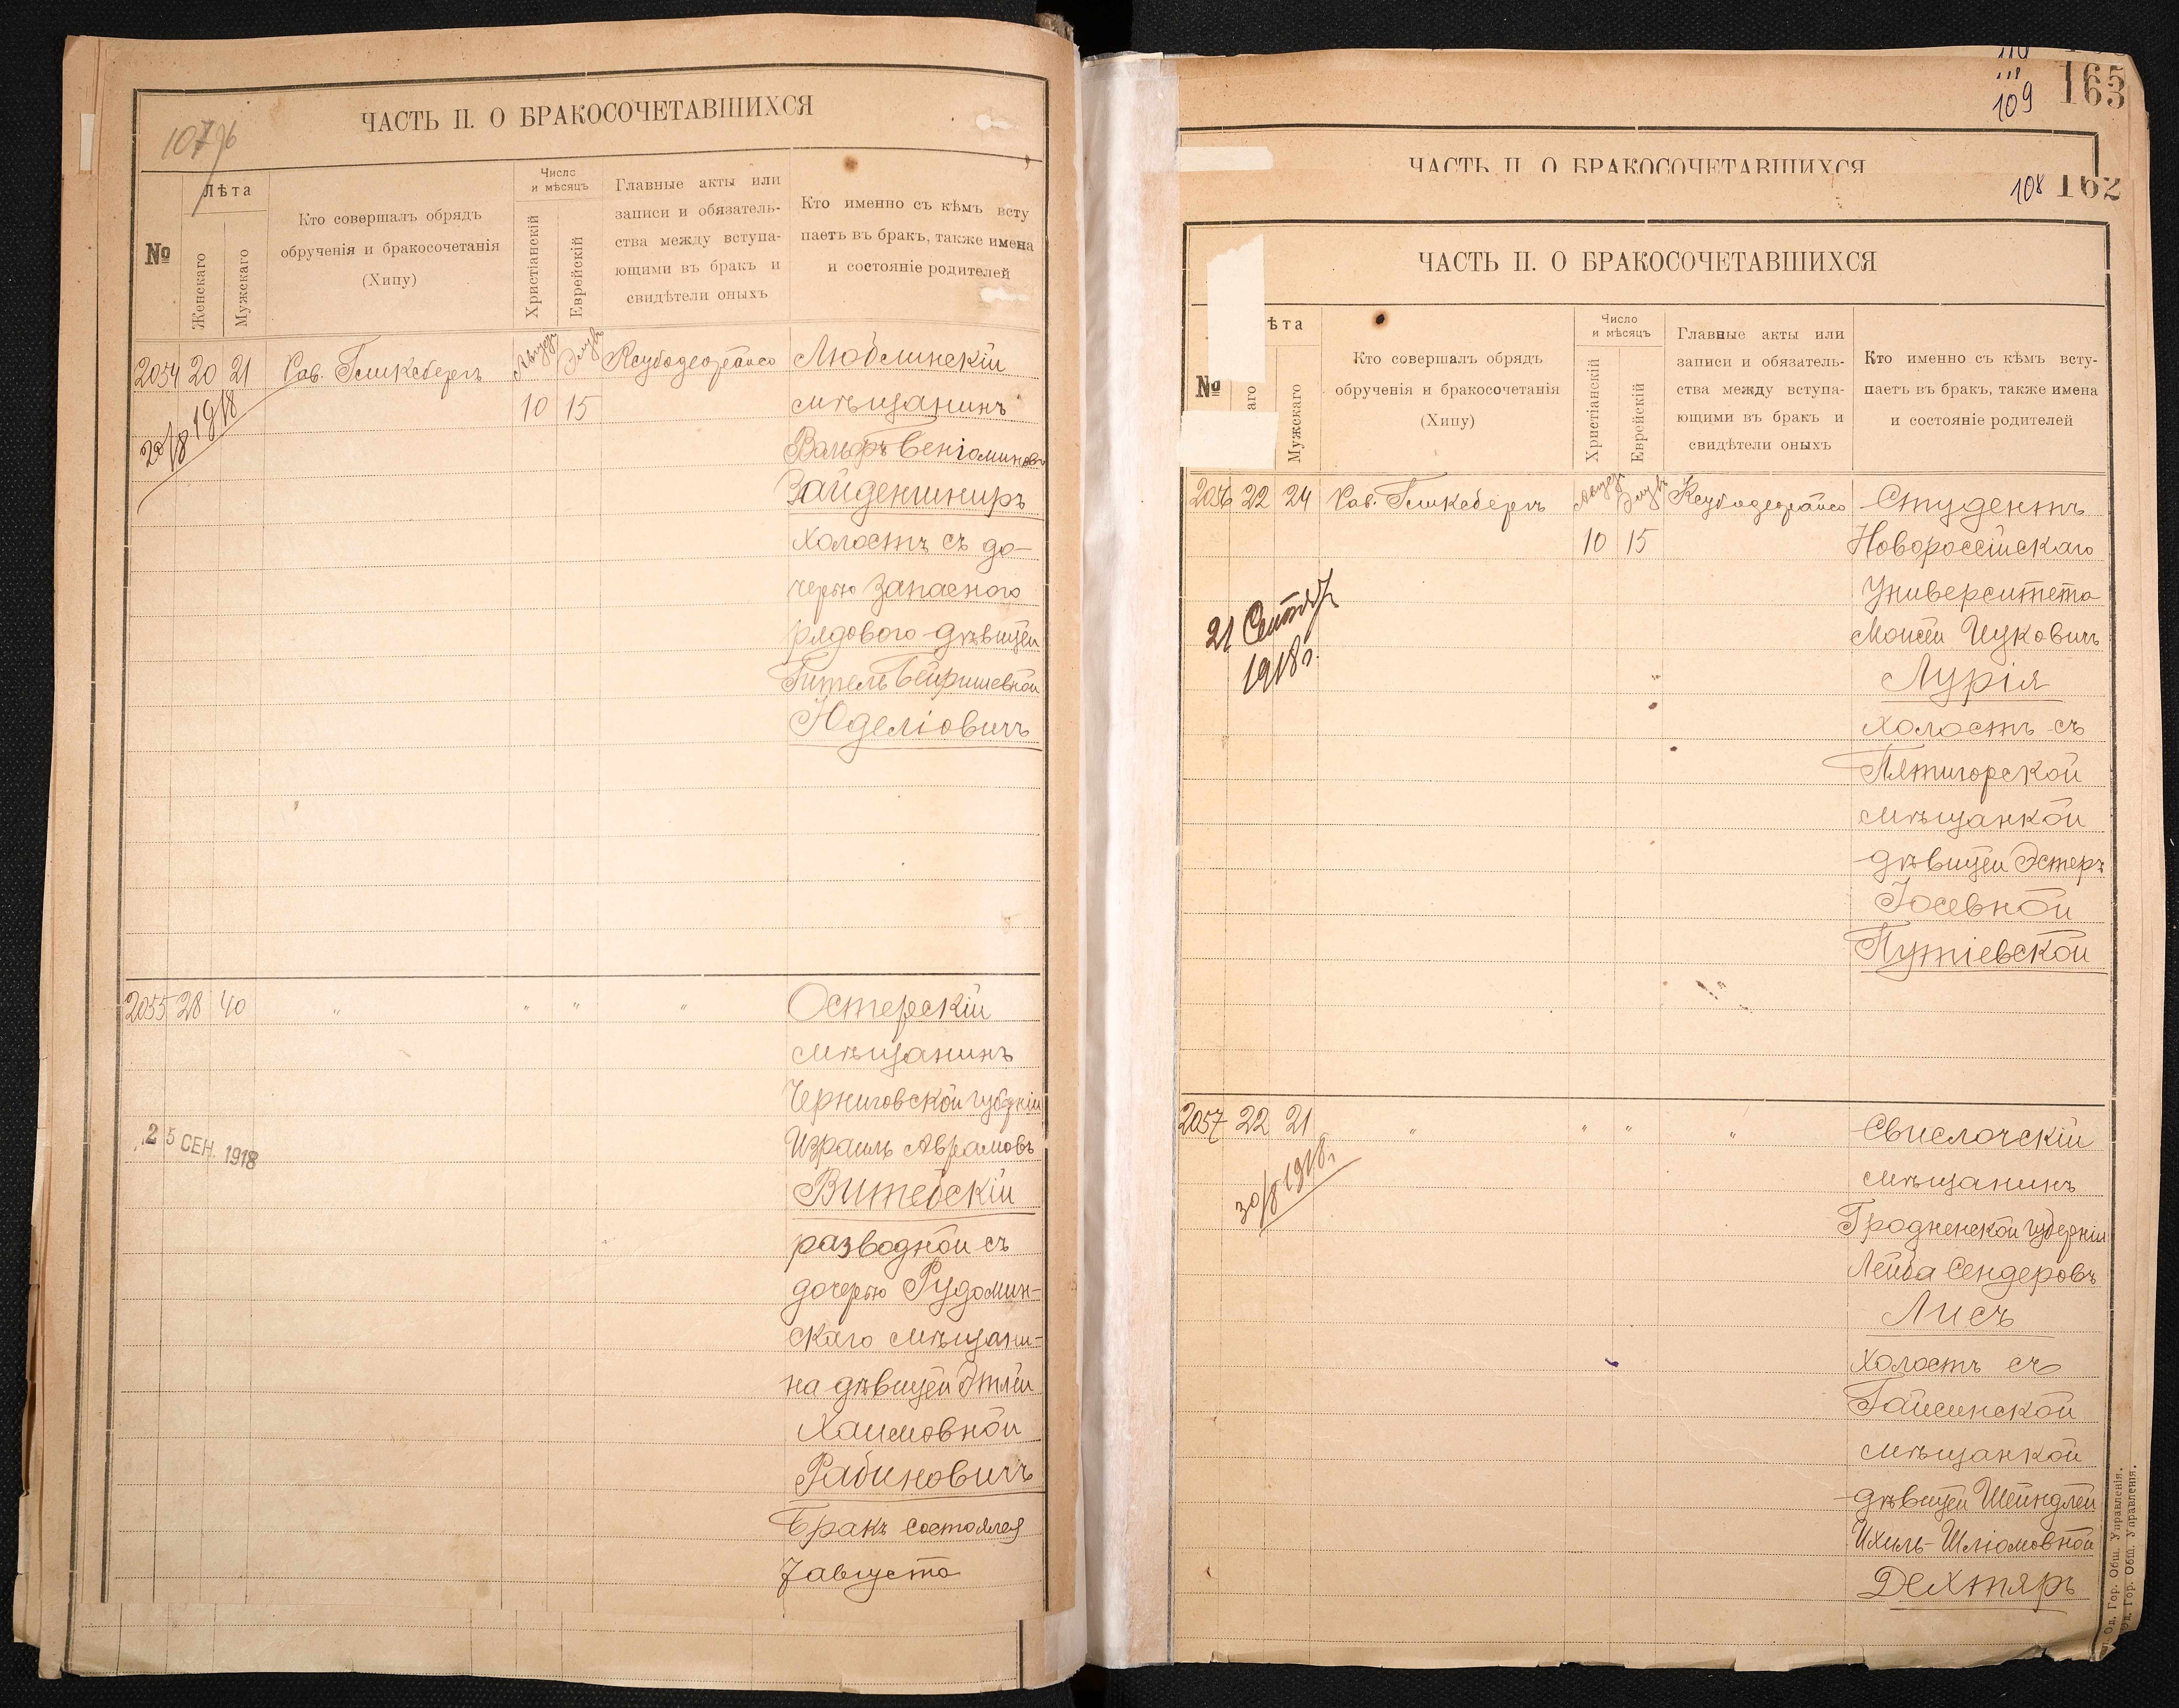 107 об
ЧАСТЬ II. О БРАКОСОЧЕТАВШИХСЯ
№
Лѣта
Женскаго
Мужскаго
Кто совершалъ обрядъ
обрученія и бракосочетанія
(Хипу)
Число
и мѣсяцъ
Христіанскій
Еврейскій
Главные акты или
записи и обязатель-
ства между вступа-
ющими въ бракъ и
свидѣтели оныхъ
Кто именно съ кѣмъ всту
паетъ въ бракъ, также имена
и состояніе родителей
2054 20 21 Рав. Гликсбергъ
10 15
Люблинскій
мѣщанинъ
Вольфъ Беніаминовъ
Зайденшниръ
холостъ съ до-
черью запасного
рядового дѣвицей
Гитель Бейришевной
Юделіовичъ
20/8 1918
2055 28 40 " " " "
Остерскій
мѣщанинъ
Черниговской губерніи
Израиль Аврамовъ
Витебскій
разводной съ
дочерью Рудомин-
скаго мѣщани-
на дѣвицей Этлей
Хаимовной
Рабиновичъ
Бракъ состоялся
7 августа
25 СЕН. 1918
109 165
ЧАСТЬ II. О БРАКОСОЧЕТАВШИХСЯ
108 162
ЧАСТЬ II. О БРАКОСОЧЕТАВШИХСЯ
№
ѣта
аго
Мужскаго
Кто совершалъ обрядъ
обрученія и бракосочетанія
(Хипу)
Число
и мѣсяцъ
Христіанскій
Еврейскій
Главные акты или
записи и обязатель-
ства между вступа-
ющими въ бракъ и
свидѣтели оныхъ
Кто именно съ кѣмъ всту-
паетъ въ бракъ, также имена
и состояніе родителей
2056 22 24 Рав. Гликсбергъ
10 15
Студентъ
Новороссійскаго
Университета
Моисей Ицковичъ
Лурія
холостъ съ
Пятигорской
мѣщанкой
дѣвицей Эстеръ
Іосевной
Путіевской
21 Сентяб.
1918 г.
2057 22 21 " " " "
Свислочскій
мѣщанинъ
Гродненской губерніи
Лейба Сендеровъ
Лисъ
холостъ съ
Гайсинской
мѣщанкой
дѣвицей Шейндлей
Ихиль-Шліомовной
Дехтяръ
30/8 1918 г.
Од. Гор. Общ. Управленія.
Од. Гор. Общ. Управленія.